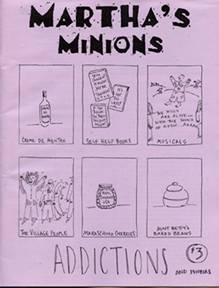 MARTHA'S
MINIONS
CREME DE MENTHE
SELF HELP BOOKS
THE HILLS
ARE ALIVE...
WITH THE SOUND
OF MUSIC
MUSICALS
THE VILLAGE PEOPLE
MARASCHINO CHERRIES
AUNT BETTY'S
BAKED BEANS
ADDICTIONS
#3